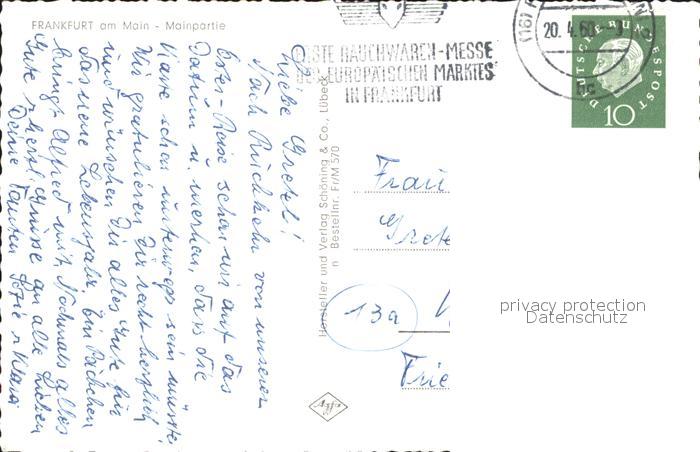 FRANKFURT am Main - Mainpartie
ERSTE RAUCHWAREN-MESSE
DES EUROPÄISCHEN MARKTES
IN FRANKFURT
(16)
20. 4. 60
bc
DEUTSCHE BUNDESPOST
10
Liebe Gretel!
Nach Rückkehr von unserer
Oster-Reise schau wir auf das
Datum u. merken, dass die
Karte schon unterwegs sein müsste
Wir gratulieren Dir recht herzlich
und wünschen Dir alles Gute für
das neue Lebensjahr. Ein Päckchen
bringt Alfred mit. Nochmals alles
Gute & herzl. Grüsse an alle Lieben
Deine Tanten &
Hersteller und Verlag Schöning & Co., Lübeck
Bestellnr. Fr/M 570
Frau
Grete
13a
Frie
Agfa
privacy protection
Datenschutz